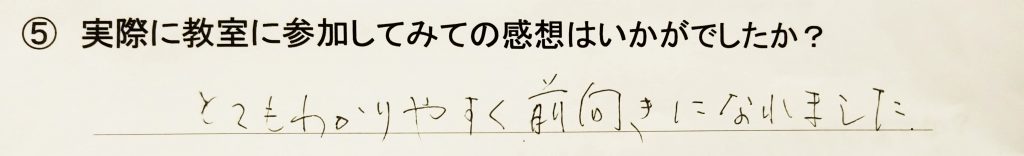 ⑤ 実際に教室に参加してみての感想はいかがでしたか？
とてもわかりやすく前向きになれました.